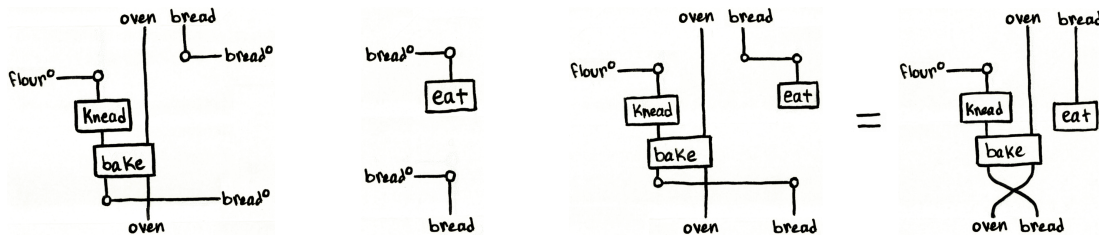 oven bread
bread°
flour°
Knead
bake
bread°
oven
bread°
eat
bread°
bread
oven bread
flour°
Knead
eat
bake
oven bread
=
oven bread
flour°
Knead
eat
bake
oven bread